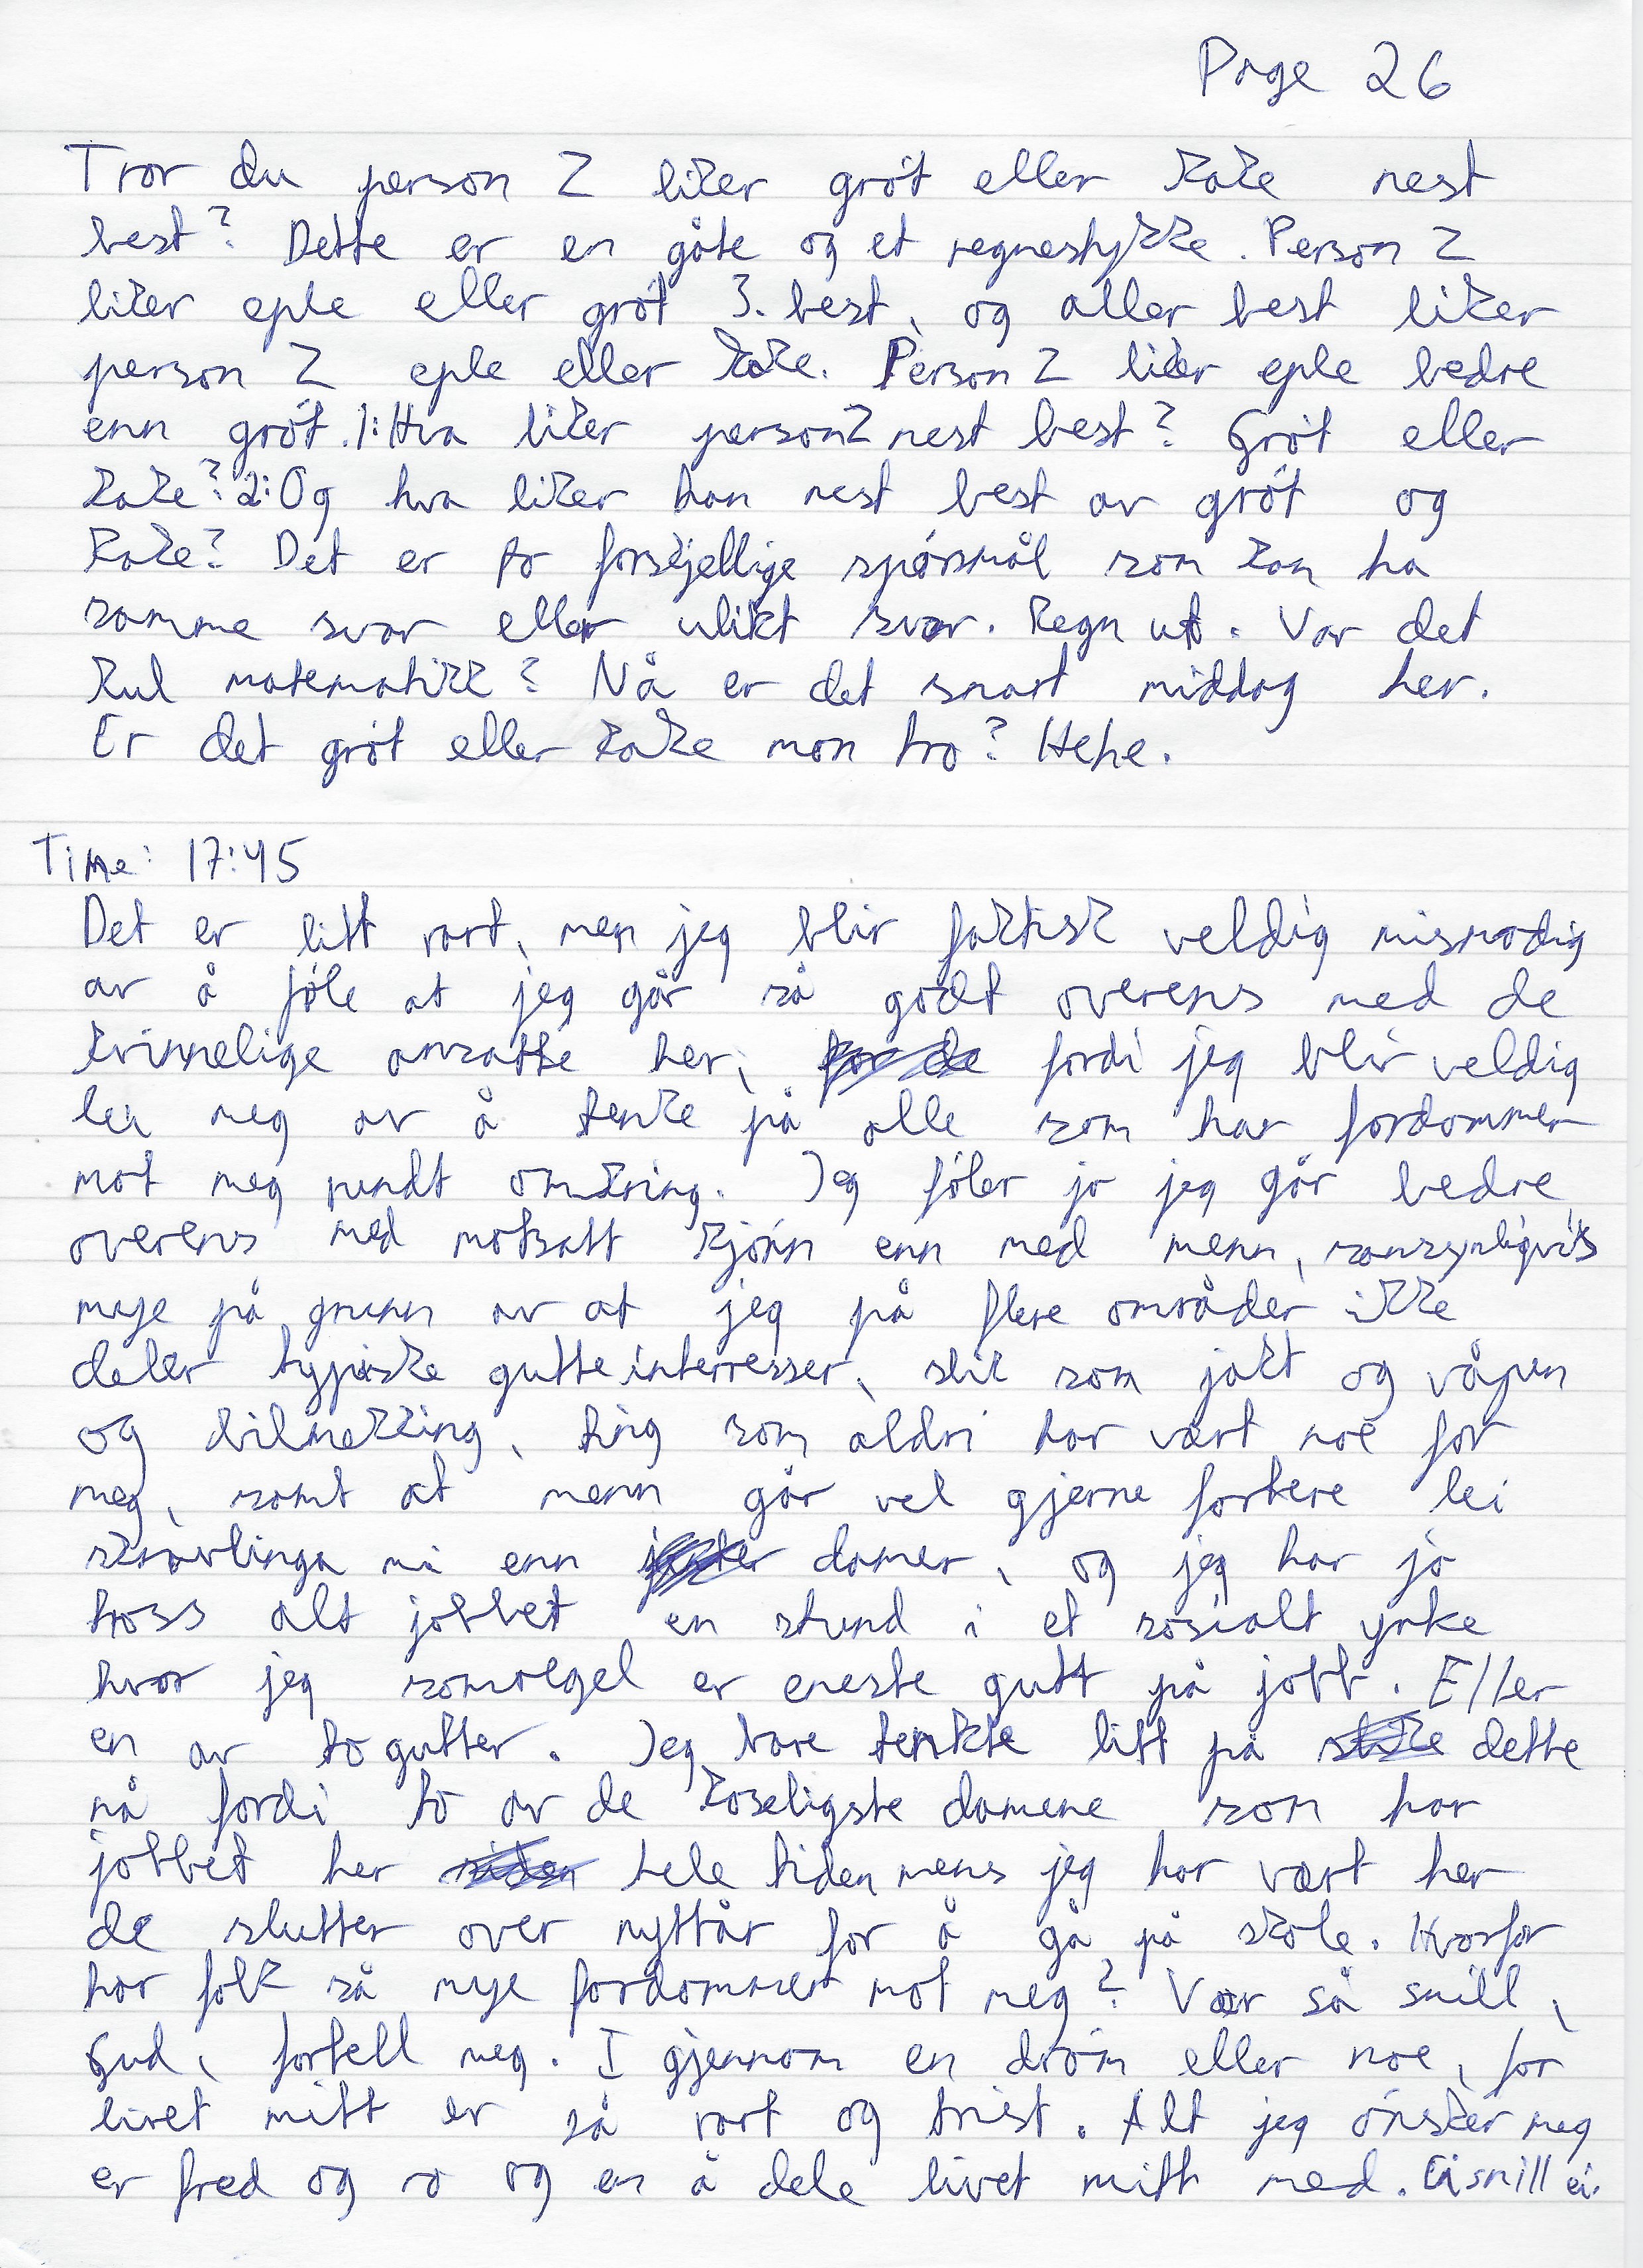 Page 26
Tror du person 2 liker grøt eller kake nest
best? Dette er en gåte og et regnestykke. Person 2
liker eple eller grøt 3. best, og aller best liker
person 2 eple eller kake. Person 2 liker eple bedre
enn grøt. 1: Hva liker person 2 nest best? Grøt eller
kake? 2: Og hva liker han nest best av grøt og
kake? Det er to forskjellige spørsmål som kan ha
samme svar eller ulikt svar. Regn ut. Var det
kul matematikk? Nå er det snart middag her.
Er det grøt eller kake mon tro? Hehe.
Time: 17:45
Det er litt rart, men jeg blir faktisk veldig mismodig
av å føle at jeg går så godt overens med de
kvinnelige ansatte her, fordi jeg blir veldig
lei meg av å tenke på alle som har fordommer
mot meg rundt omkring. Jeg føler jo jeg går bedre
overens med motsatt kjønn enn med menn, sansynligvis
mye på grunn av at jeg på flere områder ikke
deler typiske gutteinterresser, slik som jakt og våpen
og bilmekking, ting som aldri har vært noe for
meg, samt at menn går vel gjerne fortere lei
skravlinga mi enn damer, og jeg har jo
tross alt jobbet en stund i et sosialt yrke
hvor jeg somregel er eneste gutt på jobb. Eller
en av to gutter. Jeg bare tenkte litt på dette
nå fordi to av de koseligste damene som har
jobbet her hele tiden mens jeg har vært her
de slutter over nyttår for å gå på skole. Hvorfor
har folk så mye fordommer mot meg? Vær så snill,
Gud, fortell meg. I gjennom en drøm eller noe, for
livet mitt er så rart og trist. Alt jeg ønsker meg
er fred og ro og en å dele livet mitt med. Ei snill ei.